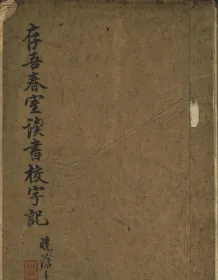 存吾春室读書校字記